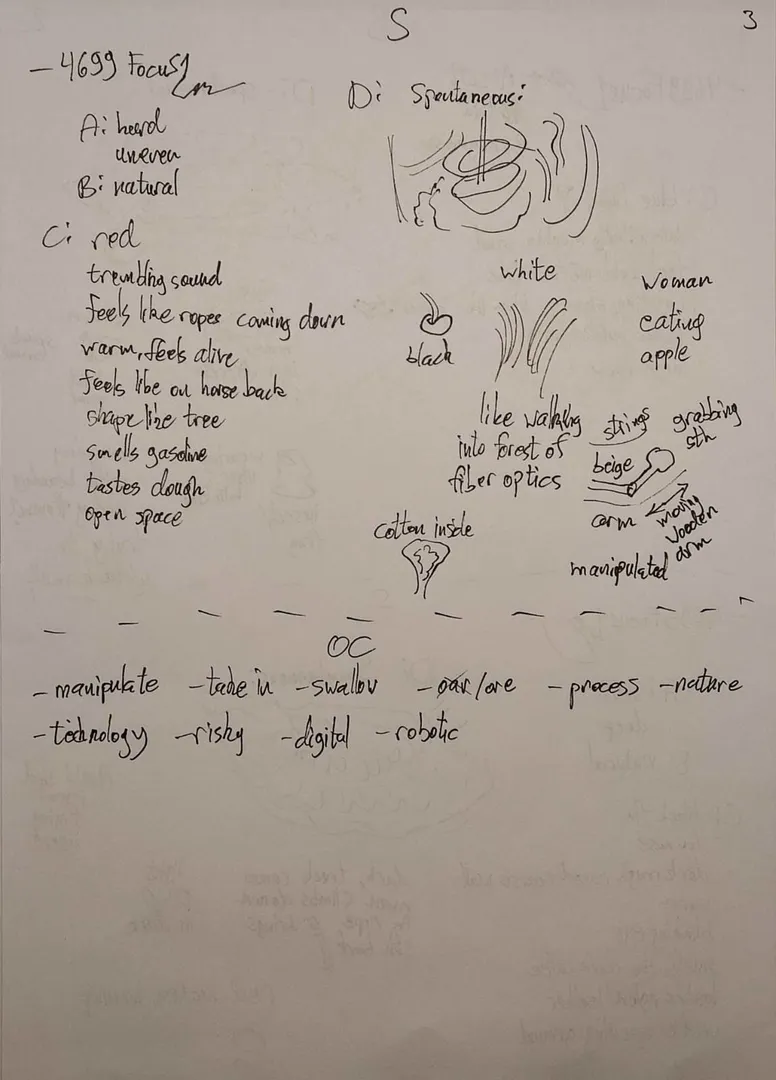 S
3
- 4699 Focus1
A: heard
uneven
B: natural
C: red
trembling sound
feels like ropes coming down
warm, feels alive
feels like on horse back
shape like tree
smells gasoline
tastes dough
open space
D: Spontaneous:
white
black
like walking
into forest of
fiber optics
Woman
eating
apple
strings
grabbing
sth
beige
arm
moving
wooden
arm
manipulated
cotton inside
OC
- manipulate - take in - swallow - oar/ore - process - nature
- technology - risky - digital - robotic